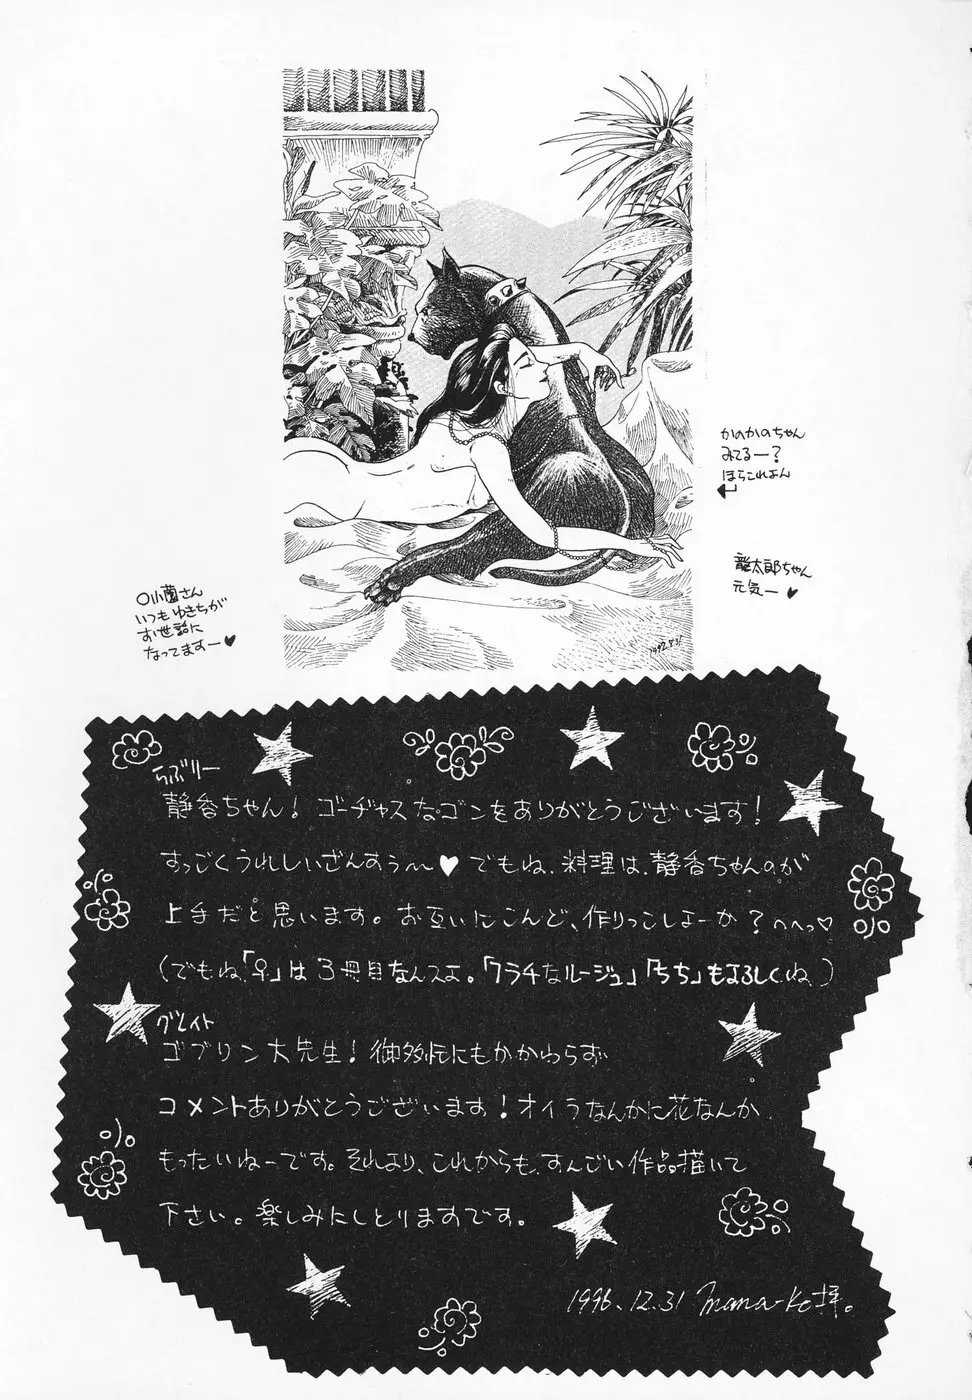 かのかのちゃん
みてるー?
ほらこれよん
龍太郎ちゃん
元気ー♥
○小菌さん
いつもゆきちがが
お世話に
なってますー♥
1992.5.31
らぶりー
静香ちゃん! ゴージャスなゴンをありがとうございます!
すっごくうれしいざんすぅ〜♥でもね、料理は、静香ちゃんのが
上手だと思います。お互いにこんど、作りっこしよーか?へへっ♡
(でもね、「♀」は3冊目なんスよ。「フラチなルージュ」「うち」もよろしくね)
グレイト
ゴブリン大先生! 御多忙にもかかわらず
コメントありがとうございます! オイラなんかに花なんか
もったいねーです。それより、これからも、すんごい作品描いて
下さい。楽しみにしとりますです。
1996.12.31 Mana-Ko拝。